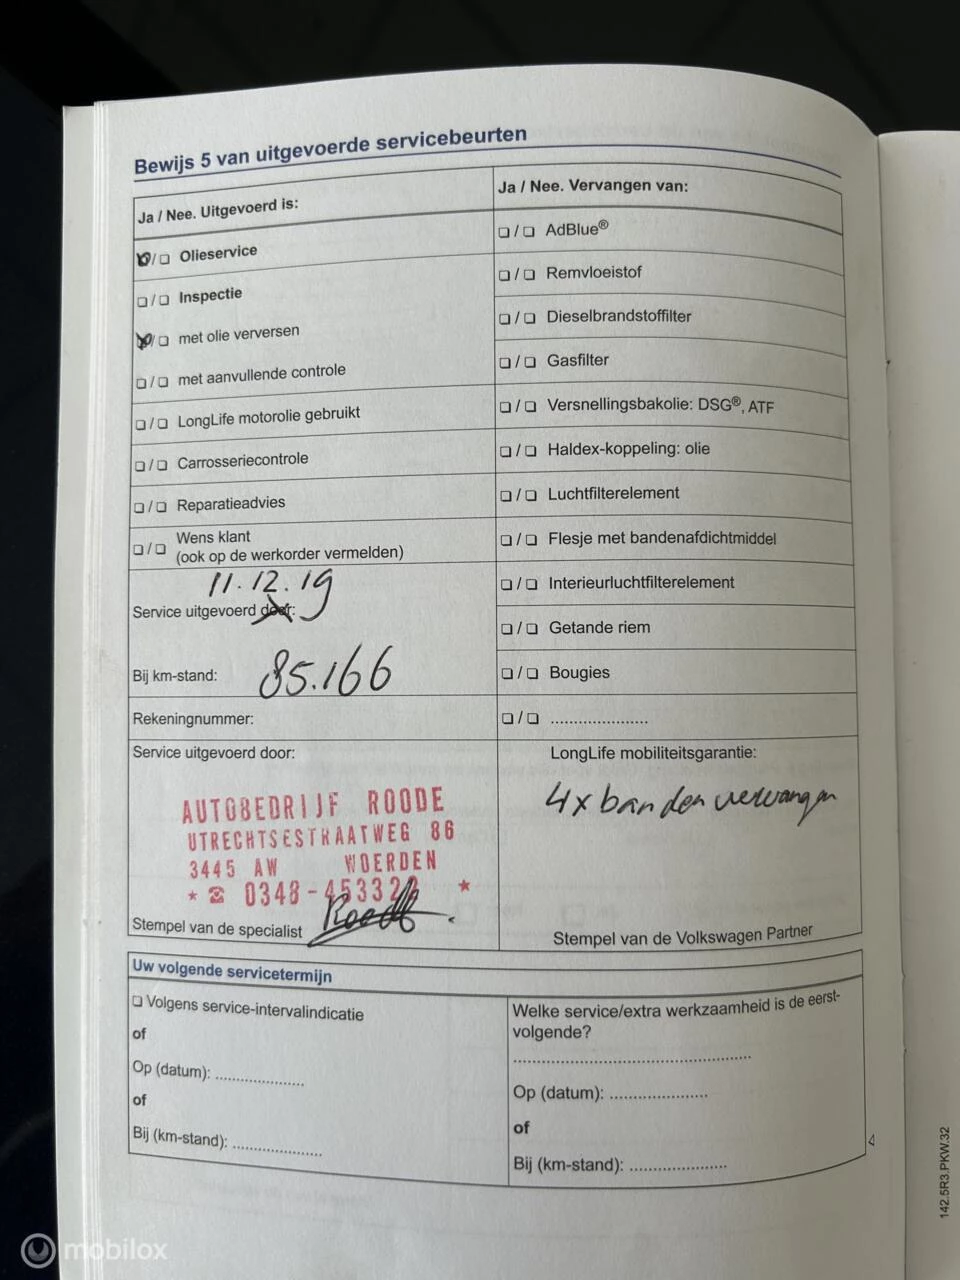 Bewijs 5 van uitgevoerde servicebeurten
Ja / Nee. Uitgevoerd is:
/ Olieservice
/ Inspectie
/ met olie verversen
/ met aanvullende controle
/ LongLife motorolie gebruikt
/ Carrosseriecontrole
/ Reparatieadvies
/ Wens klant
(ook op de werkorder vermelden)
11.12.19
Service uitgevoerd door:
Bij km-stand: 85.166
Rekeningnummer:
Service uitgevoerd door:
AUTOBEDRIJF ROODE
UTRECHTSESTRAATWEG 86
3445 AW WOERDEN
* ☎ 0348-453322 *
Stempel van de specialist
Ja / Nee. Vervangen van:
/ AdBlue®
/ Remvloeistof
/ Dieselbrandstoffilter
/ Gasfilter
/ Versnellingsbakolie: DSG®, ATF
/ Haldex-koppeling: olie
/ Luchtfilterelement
/ Flesje met bandenafdichtmiddel
/ Interieurluchtfilterelement
/ Getande riem
/ Bougies
/ .....................
LongLife mobiliteitsgarantie:
4x banden vervangen
Stempel van de Volkswagen Partner
Uw volgende servicetermijn
Volgens service-intervalindicatie
of
Op (datum): ...................
of
Bij (km-stand): ...................
Welke service/extra werkzaamheid is de eerst-
volgende?
..................................................
Op (datum): .....................
of
Bij (km-stand): .....................
142.5R3.PKW.32
mobilox